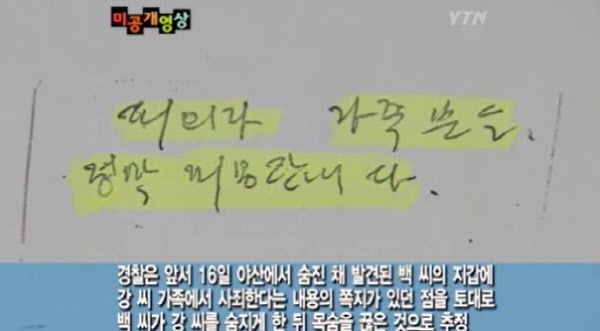 미공개영상
YTN
가족 분들.
정말
경찰은 앞서 16일 야산에서 숨진 채 발견된 백 씨의 지갑에
강 씨 가족에서 사죄한다는 내용의 쪽지가 있던 점을 토대로
백 씨가 강 씨를 숨지게 한 뒤 목숨을 끊은 것으로 추정